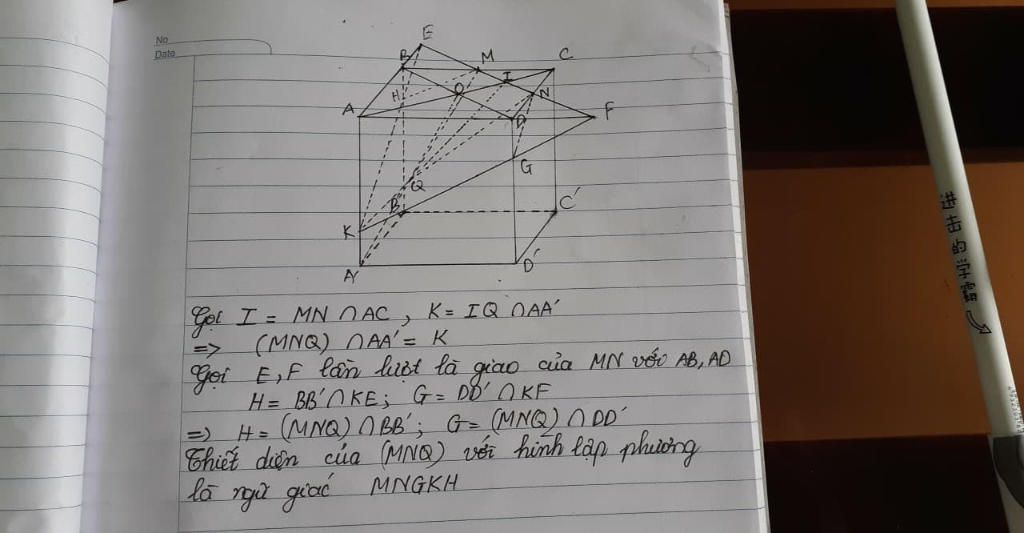 No
Date
E
B
M
C
I
H
O
N
A
D
F
G
Q
B'
C'
K
A'
D'
Gọi I = MN ∩ AC , K = IQ ∩ AA'
=> (MNQ) ∩ AA' = K
Gọi E, F lần lượt là giao của MN với AB, AD
H = BB' ∩ KE ; G = DD' ∩ KF
=> H = (MNQ) ∩ BB' ; G = (MNQ) ∩ DD'
Thiết diện của (MNQ) với hình lập phương
là ngũ giác MNGKH
进击的学霸